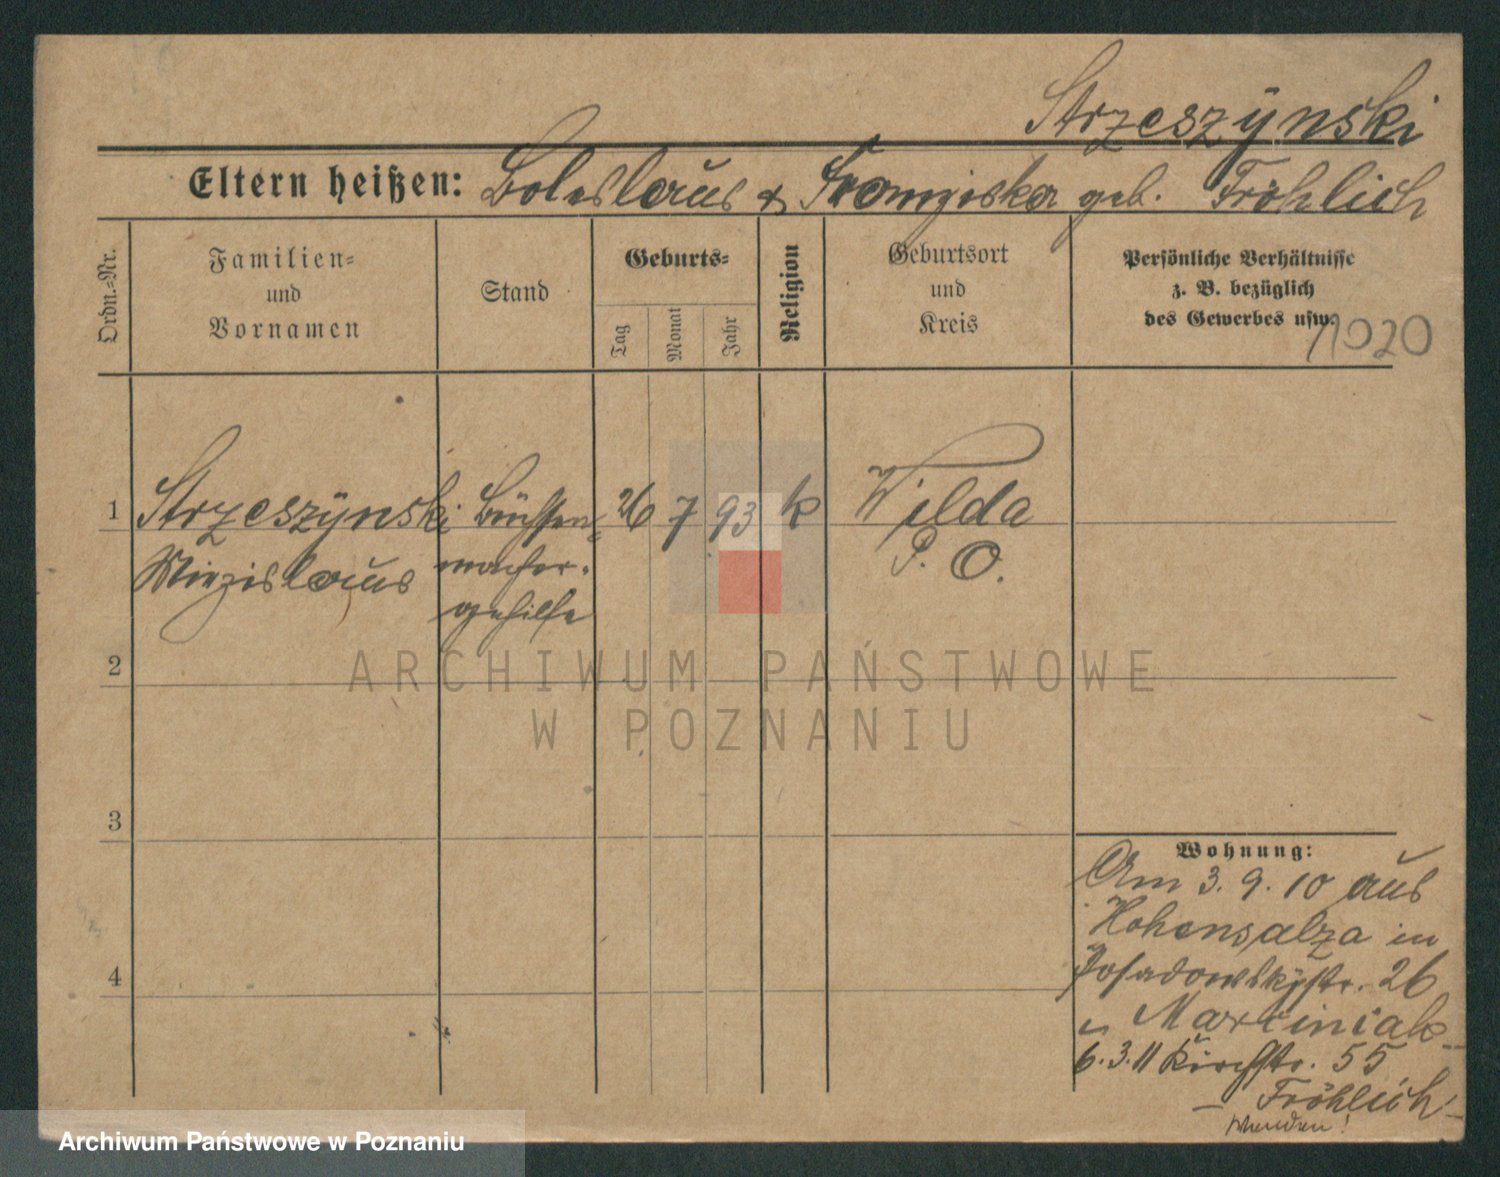 Strzeszÿnski
Eltern heißen: Boleslaus & Franziska geb. Fröhlich
Ordn.-Nr.
Familien-
und
Vornamen
Stand
Geburts-
Tag
Monat
Jahr
Religion
Geburtsort
und
Kreis
Persönliche Verhältnisse
z. B. bezüglich
des Gewerbes usw.
1920
1 Strzeszÿnski Büchsen- 26 7 93 k Wilda
Miezislaus macher- P. O.
gehilfe
2
ARCHIWUM PAŃSTWOWE
W POZNANIU
3
Wohnung:
Am 3. 9. 10 aus
Hohensalza in
Posadowskÿstr. 26
Marciniak-
6. 3. 11 Kirchstr. 55
– Fröhlich –
wenden!
4
Archiwum Państwowe w Poznaniu